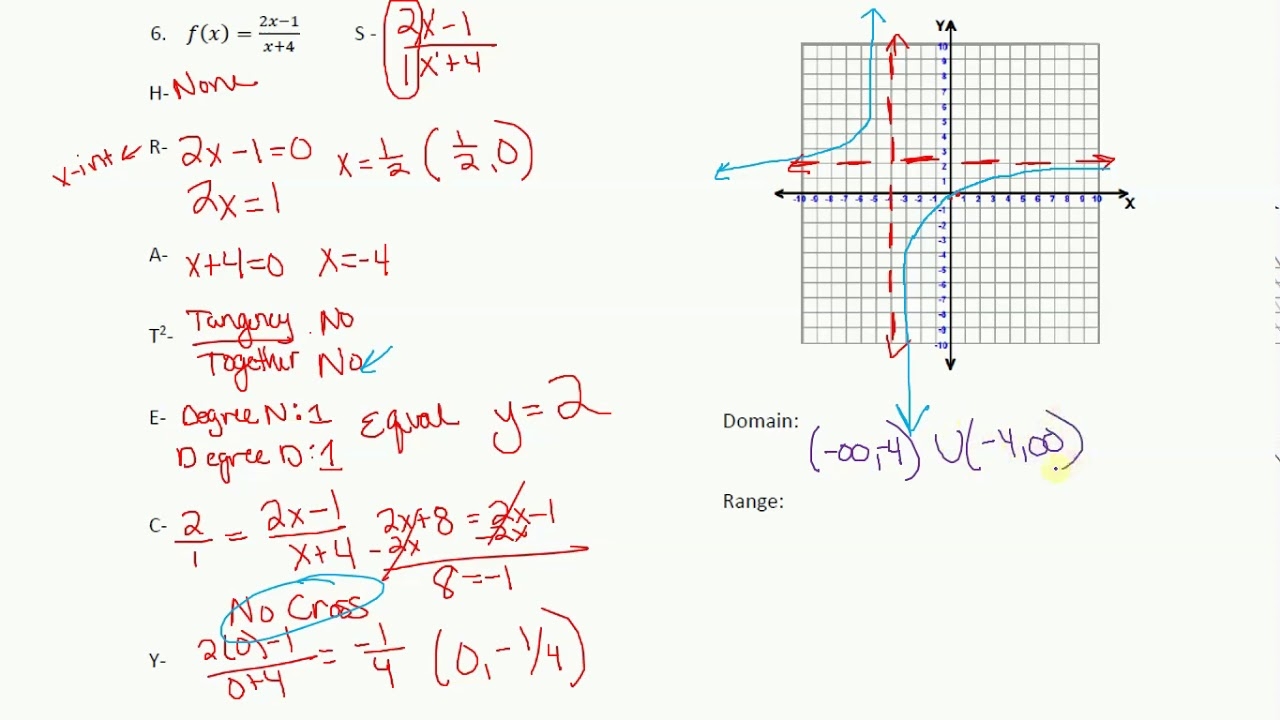 6. f(x) = 2x−1/x+4
S - 2x¹ - 1/1x¹ + 4
H- None
x-int ← R- 2x - 1 = 0 x = 1/2 (1/2, 0)
2x = 1
A- x+4=0 x=-4
T²- Tangency No
Together No
E- Degree N: 1 Equal y = 2
Degree D: 1
C- 2/1 = 2x-1/x+4 2x+8 = 2x-1
-2x -2x
8 = -1
No Cross
Y- 2(0)-1/0+4 = -1/4 (0, -1/4)
Y
10
9
8
7
6
5
4
3
2
1
-10 -9 -8 -7 -6 -5 -4 -3 -2 -1 1 2 3 4 5 6 7 8 9 10 X
-1
-2
-3
-4
-5
-6
-7
-8
-9
-10
Domain: (-∞,-4) ∪ (-4,∞)
Range: